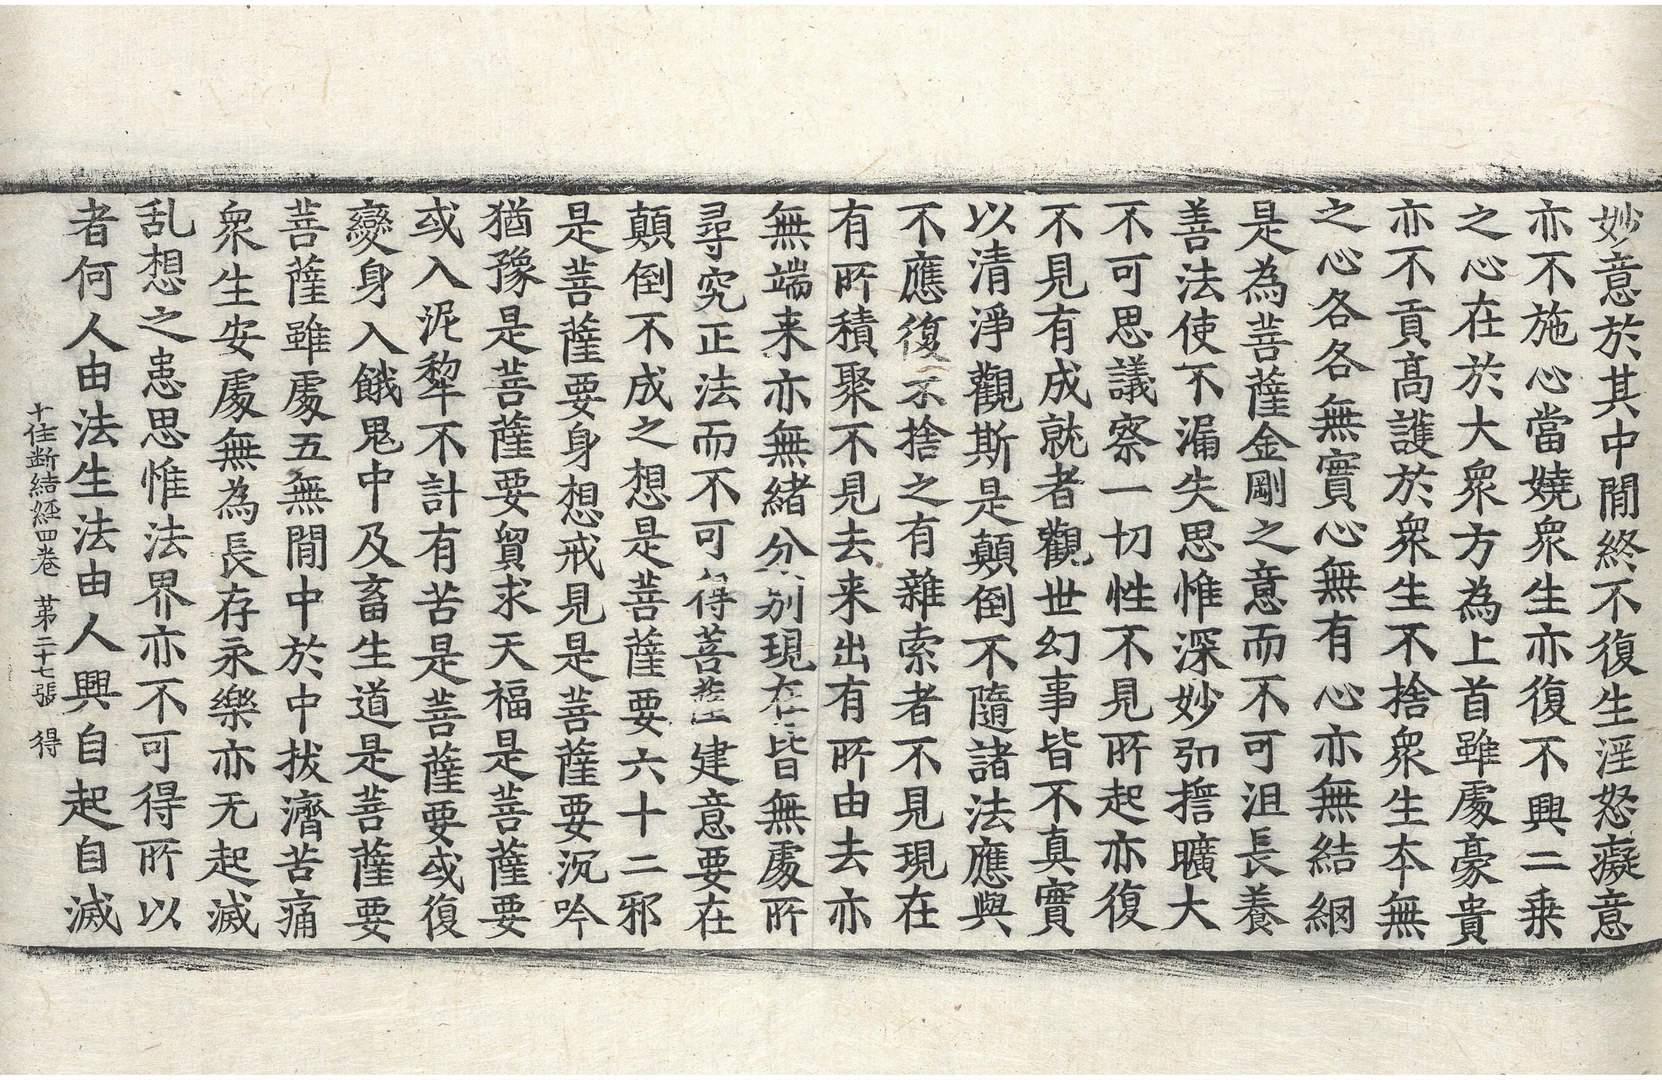 妙意於其中閒終不復生婬怒癡意
亦不施心當嬈衆生亦復不興二乗
之心在於大衆方為上首雖處豪貴
亦不貢髙護於衆生不捨衆生夲無
之心各各無實心無有心亦無結網
是為菩薩金剛之意而不可沮長養
善法使不漏失思惟深妙弘誓曠大
不可思議察一切性不見所起亦復
不見有成就者觀世幻事皆不真實
以清淨觀斯是顛倒不隨諸法應與
不應復不捨之有雜索者不見現在
有所積聚不見去来出有所由去亦
無端来亦無緒分別現在皆無處所
尋究正法而不可得菩薩建意要在
顛倒不成之想是菩薩要六十二邪
是菩薩要身想戒見是菩薩要沉吟
猶豫是菩薩要貿求天福是菩薩要
或入泥犂不計有苦是菩薩要或復
變身入餓鬼中及畜生道是菩薩要
菩薩雖處五無閒中於中拔濟苦痛
衆生安處無為長存永樂亦无起滅
乱想之恚思惟法界亦不可得所以
者何人由法生法由人興自起自滅
十住断結經四卷 苐二十七張 得